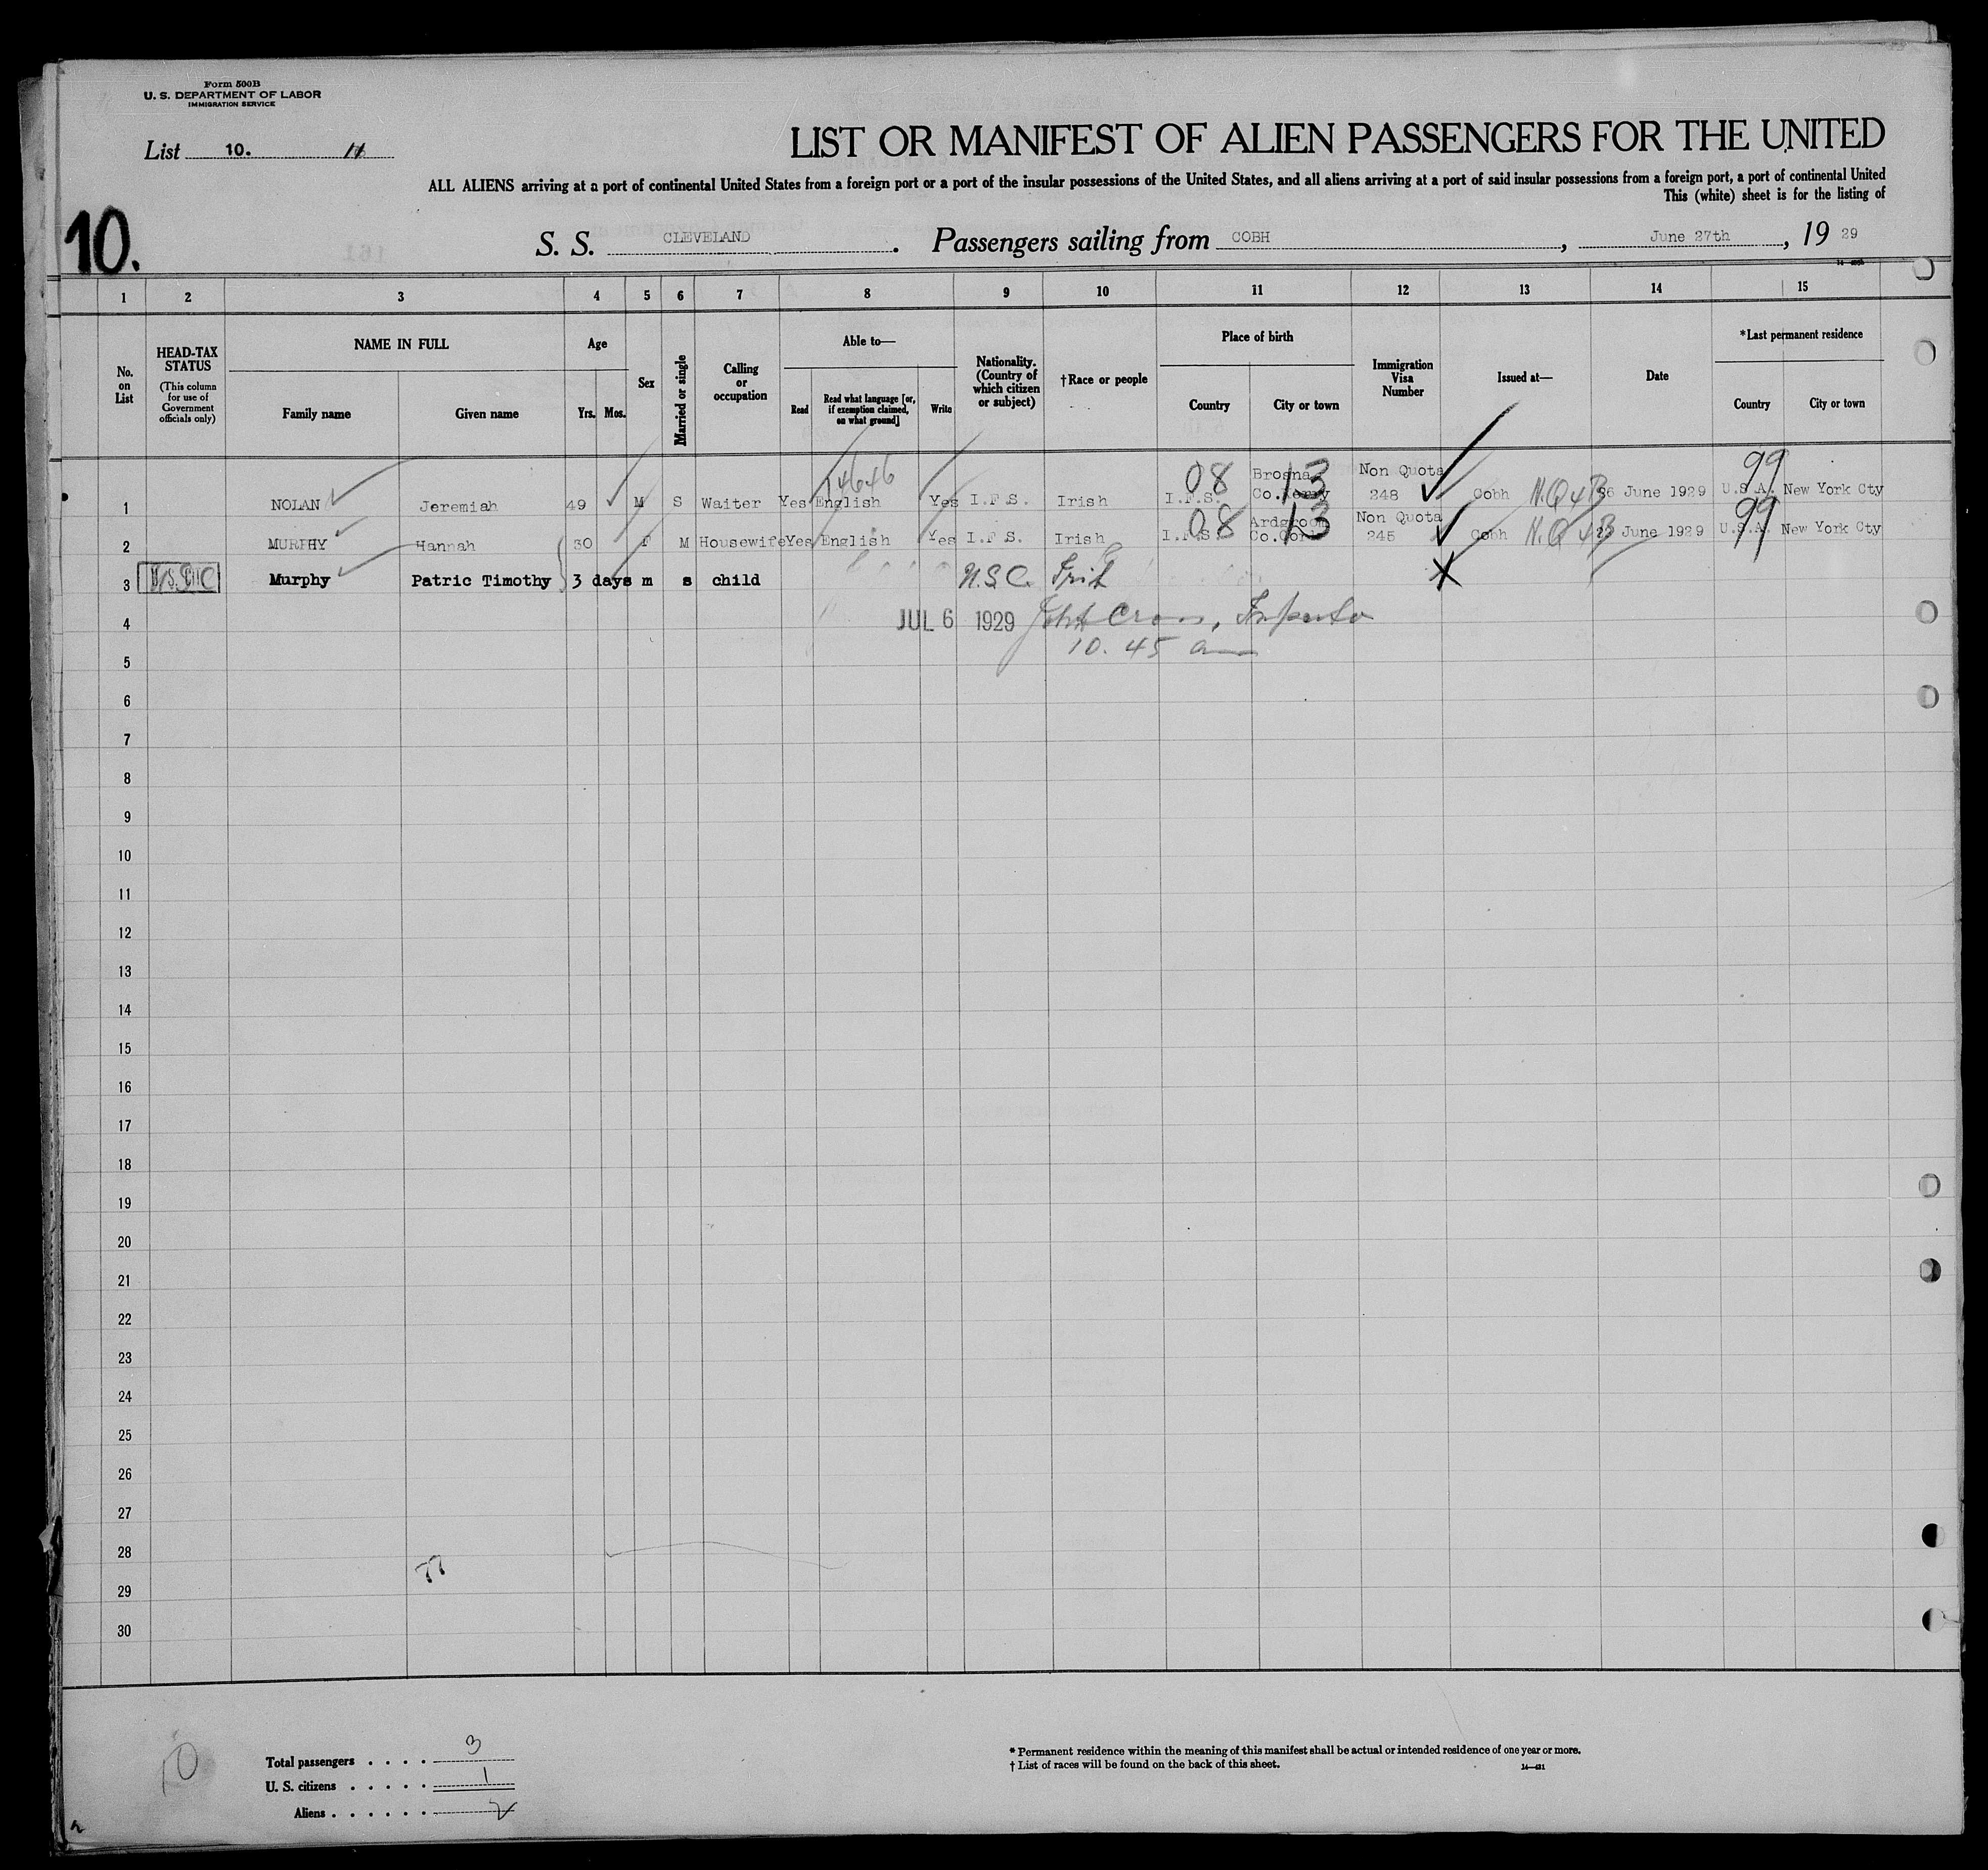 Form 500B
U. S. DEPARTMENT OF LABOR
IMMIGRATION SERVICE
List 10. 11
LIST OR MANIFEST OF ALIEN PASSENGERS FOR THE UNITED
ALL ALIENS arriving at a port of continental United States from a foreign port or a port of the insular possessions of the United States, and all aliens arriving at a port of said insular possessions from a foreign port, a port of continental United
This (white) sheet is for the listing of
10.
S. S. CLEVELAND. Passengers sailing from COBH, June 27th, 19 29
1 2 3 4 5 6 7 8 9 10 11 12 13 14 15
No. on List
HEAD-TAX STATUS
(This column for use of Government officials only)
NAME IN FULL
Family name
Given name
Age
Yrs. Mos.
Sex
Married or single
Calling or occupation
Able to—
Read
Read what language [or, if exemption claimed, on what ground]
Write
Nationality. (Country of which citizen or subject)
†Race or people
Place of birth
Country
City or town
Immigration Visa Number
Issued at—
Date
*Last permanent residence
Country
City or town
14646 08 13 99
1 NOLAN Jeremiah 49 M S Waiter Yes English Yes I.F.S. Irish I.F.S. Brosna Co.Kerry Non Quota 248 Cobh N.Q 4B 26 June 1929 U.S.A. New York Cty
08 13 99
2 MURPHY Hannah 30 F M Housewife Yes English Yes I.F.S. Irish I.F.S. Ardgroom Co.Cork Non Quota 245 Cobh N.Q 4B June 1929 U.S.A. New York Cty
3 Murphy Patric Timothy 3 days m s child
4 JUL 6 1929
10. 45 am
5
6
7
8
9
10
11
12
13
14
15
16
17
18
19
20
21
22
23
24
25
26
27
28
77
29
30
10
Total passengers . . . . 3
U. S. citizens . . . . . 1
Aliens . . . . . . 2
* Permanent residence within the meaning of this manifest shall be actual or intended residence of one year or more.
† List of races will be found on the back of this sheet.